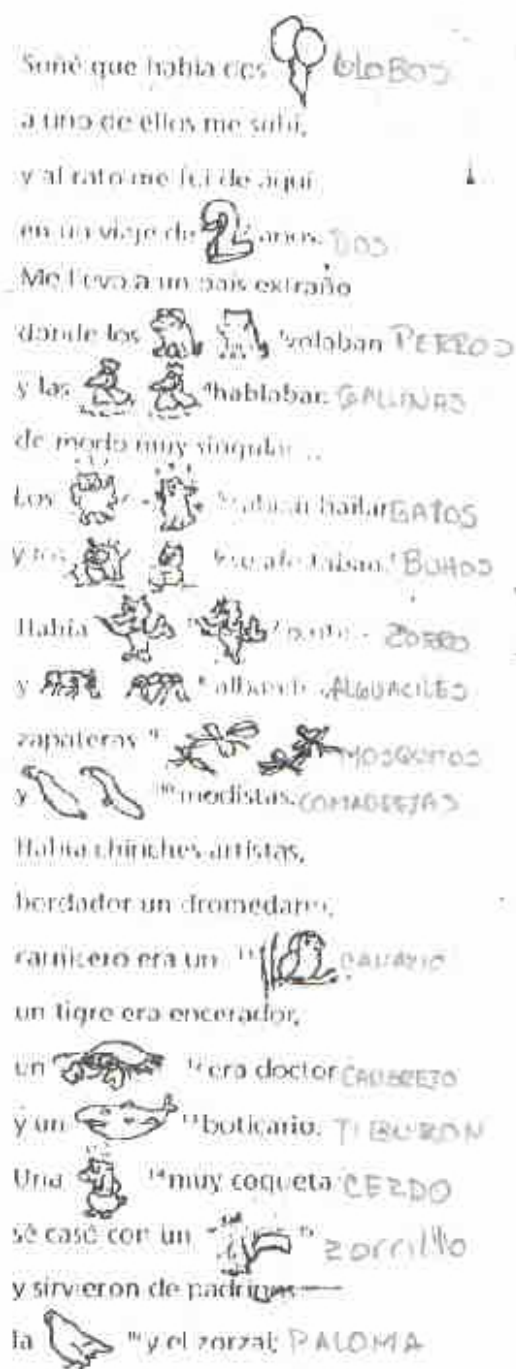 Soñé que había dos GLOBOS
a uno de ellos me subí,
y al rato me fui de aquí
en un viaje de 2 años. DOS
Me llevó a un país extraño
donde los volaban PERROS
y las hablaban GALLINAS
de modo muy singular...
Los bailar GATOS
y los BUHOS
Había ZORRO
y ALGUACILES
zapateros 9 MOSQUITOS
y 10 modistas. COMADREJAS
Había chinches artistas,
bordador un dromedario,
carnicero era un 11 CANARIO
un tigre era encerador,
un 12 era doctor CANGREJO
y un 13 boticario. TIBURON
Una 14 muy coqueta CERDO
se casó con un 15 zorrillo
y sirvieron de padrinos
la 16 y el zorzal; PALOMA